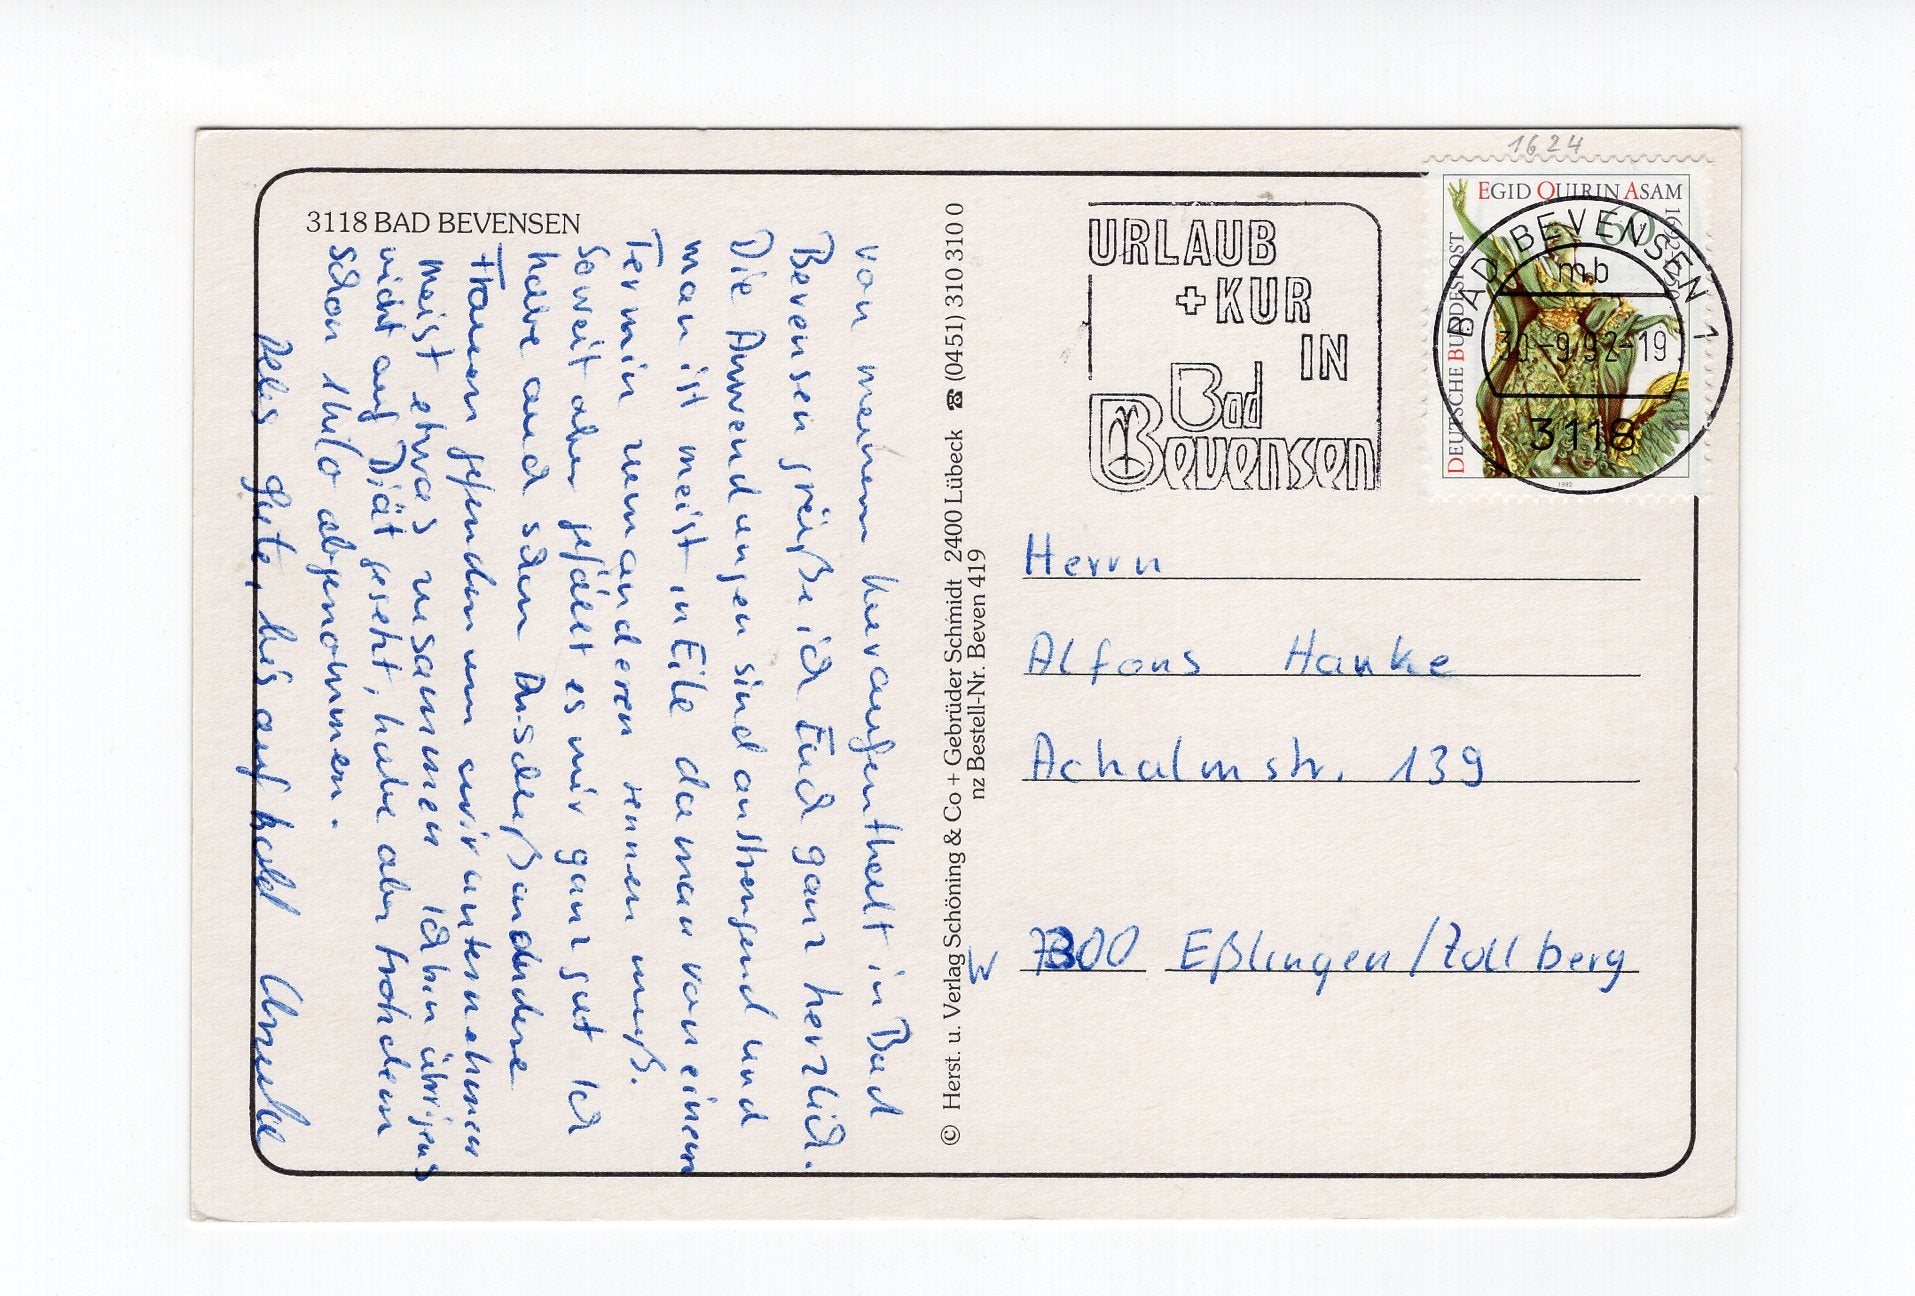 1624
3118 BAD BEVENSEN
Von meinem Kuraufenthalt in Bad
Bevensen grüße ich Euch ganz herzlich.
Die Anwendungen sind anstrengend und
man ist meist in Eile da man von einem
Termin zum anderen rennen muß.
Soweit aber gefällt es mir ganz gut Ich
habe auch schon Anschluß an andere
Frauen gefunden wir unternehmen
meist etwas zusammen Ich bin übrigens
nicht auf Diät gesetzt, habe aber trotzdem
schon 1 Kilo abgenommen.
Alles Gute, bis auf bald
© Herst. u. Verlag Schöning & Co + Gebrüder Schmidt 2400 Lübeck ☎ (0451) 310 310 0
nz Bestell-Nr. Beven 419
URLAUB
+ KUR
IN
Bad
Bevensen
EGID QUIRIN ASAM
1692-1750
60
DEUTSCHE BUNDESPOST
1992
BAD BEVENSEN 1
mb
30.-9.92-19
3118
Herrn
Alfons Hanke
Achalmstr. 139
W 7300 Eßlingen/Zollberg